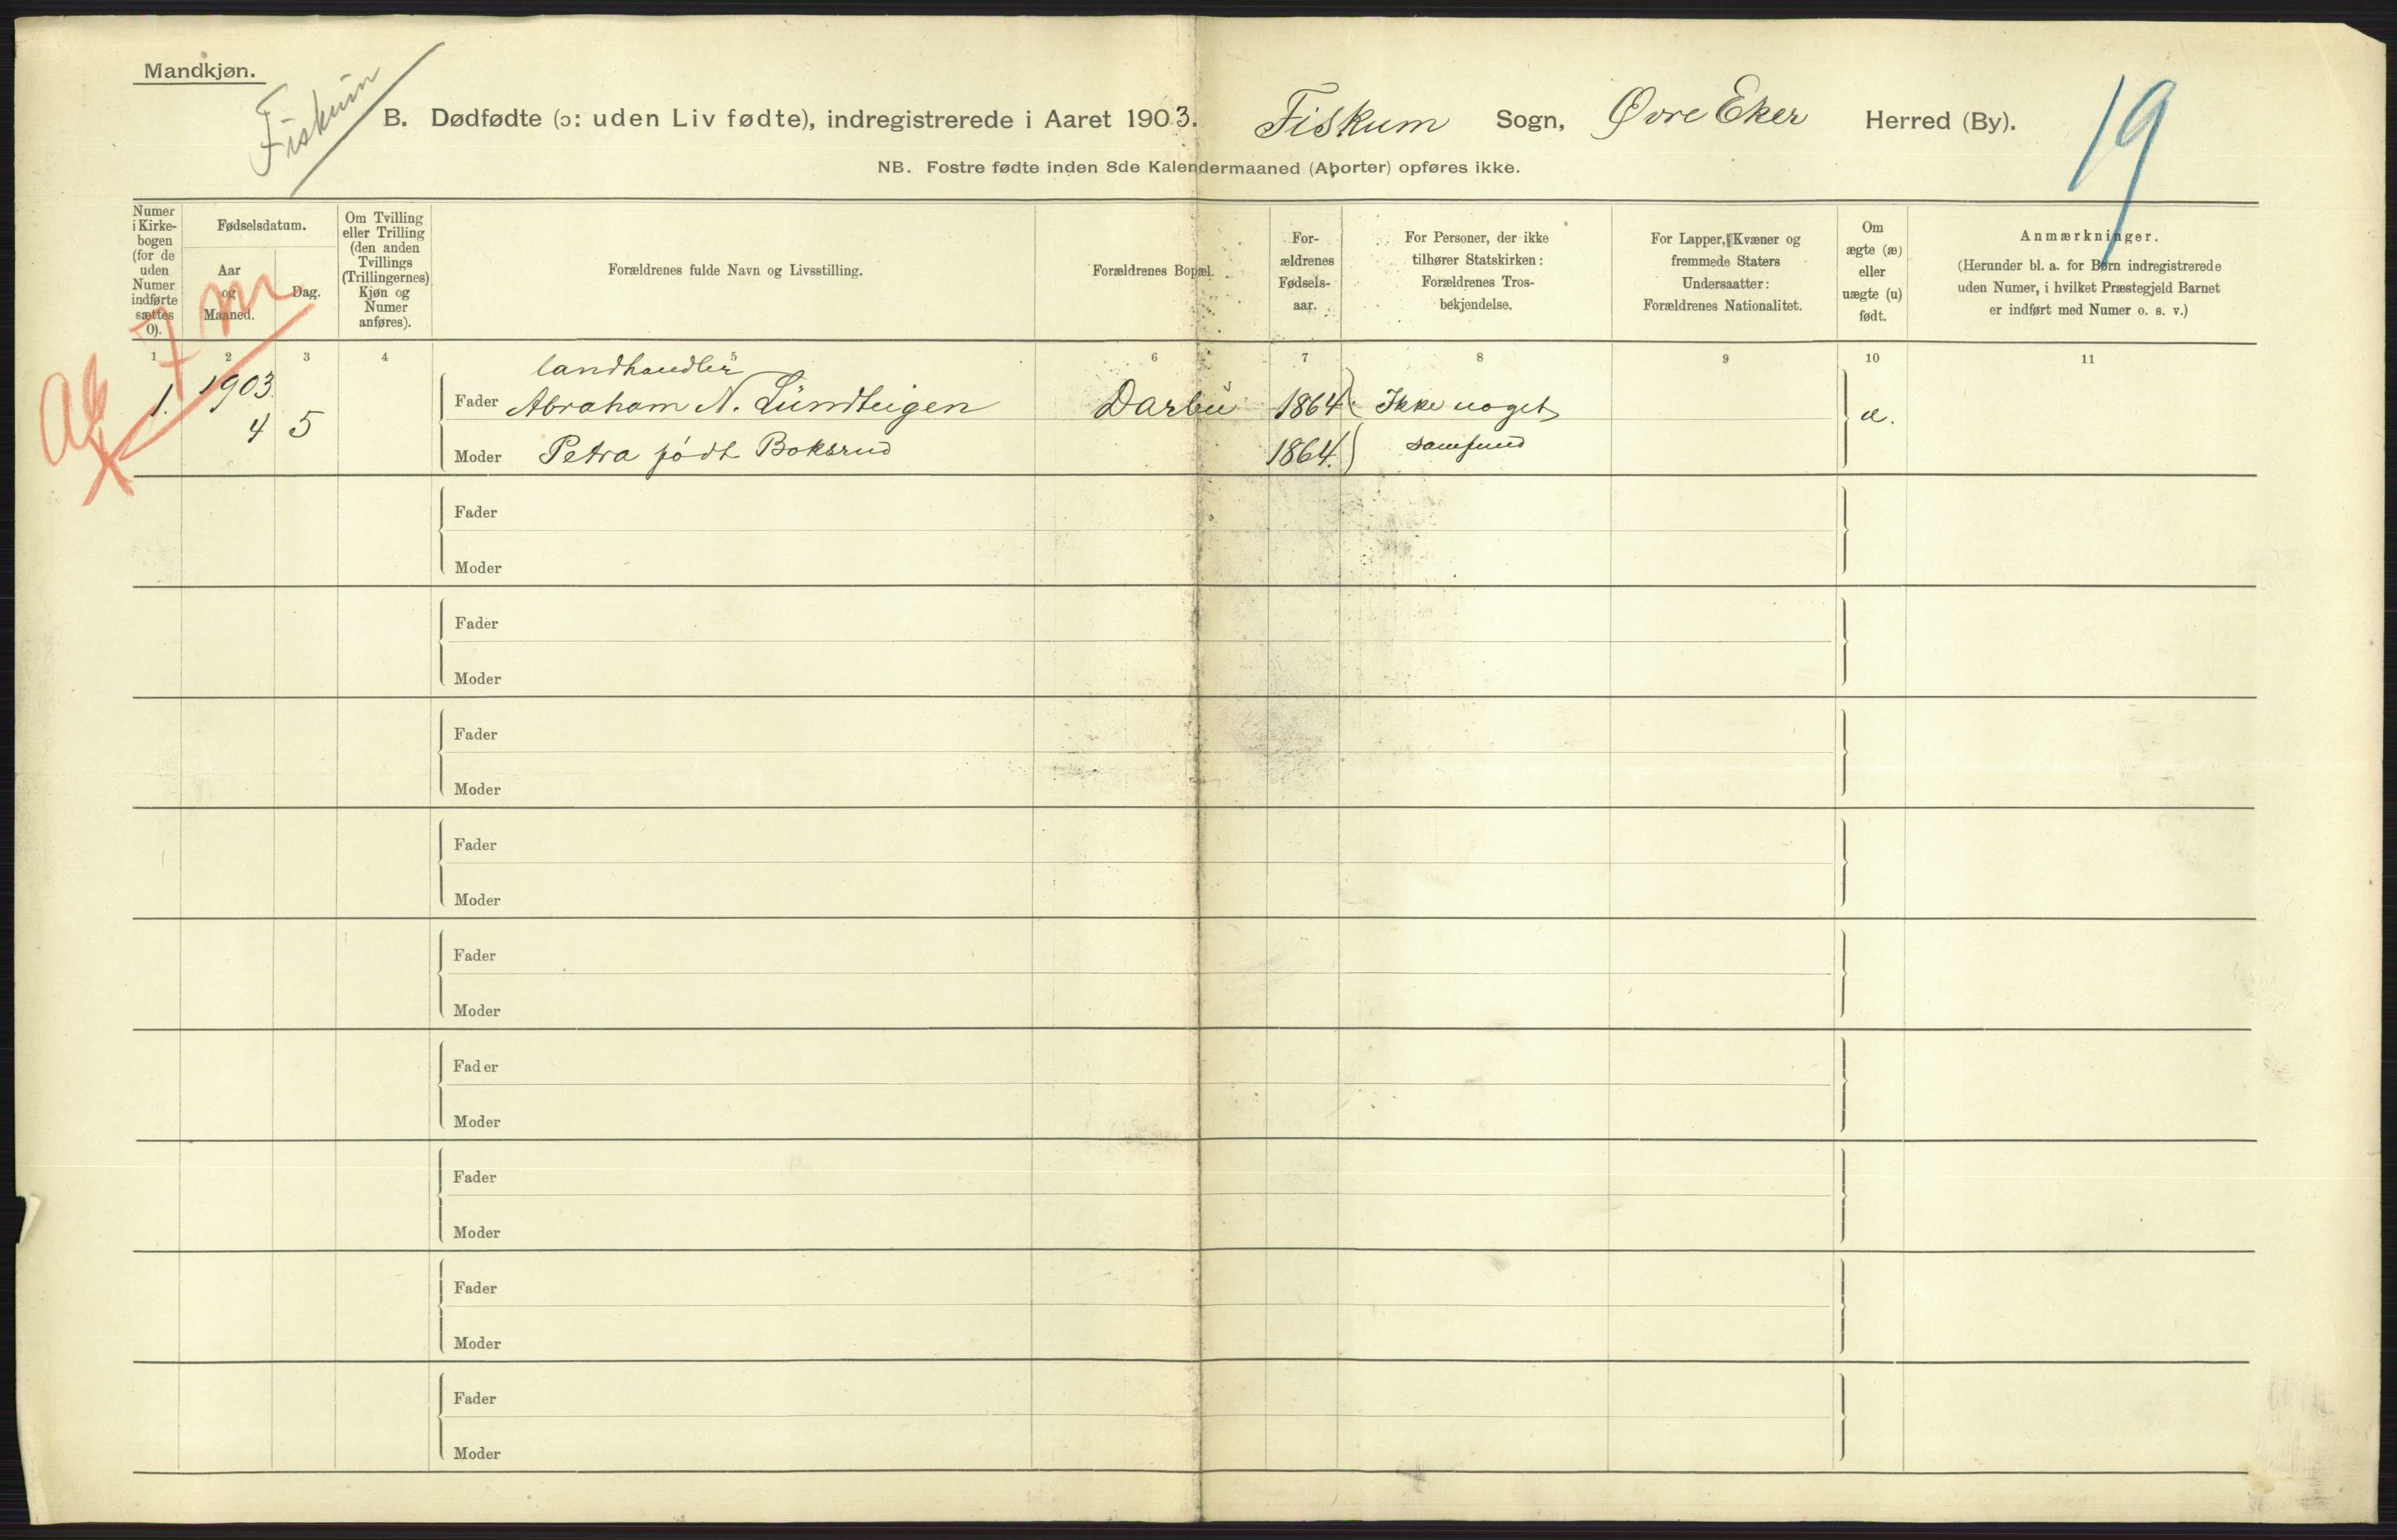 Mandkjøn.
Fiskum
B. Dødfødte (ɔ: uden Liv fødte), indregistrerede i Aaret 1903. Fiskum Sogn, Øvre Eker Herred (By).
19
NB. Fostre fødte inden 8de Kalendermaaned (Aborter) opføres ikke.
Numer
i Kirke-
bogen
(for de
uden
Numer
indførte
sættes
0).
Fødselsdatum.
Aar
og
Maaned.
Dag.
Om Tvilling
eller Trilling
(den anden
Tvillings
(Trillingernes)
Kjøn og
Numer
anføres).
Forældrenes fulde Navn og Livsstilling.
Forældrenes Bopæl.
For-
ældrenes
Fødsels-
aar.
For Personer, der ikke
tilhører Statskirken:
Forældrenes Tros-
bekjendelse.
For Lapper, Kvæner og
fremmede Staters
Undersaatter:
Forældrenes Nationalitet.
Om
ægte (æ)
eller
uægte (u)
født.
Anmærkninger.
(Herunder bl. a. for Børn indregistrerede
uden Numer, i hvilket Præstegjeld Barnet
er indført med Numer o. s. v.)
7 m
1 2 3 4 5 6 7 8 9 10 11
landhandler
1. 1903 Fader Abraham N. Lundteigen Darbu 1864 Ikke noget æ.
4 5 Moder Petra født Boksrud 1864. samfund
Fader
Moder
Fader
Moder
Fader
Moder
Fader
Moder
Fader
Moder
Fader
Moder
Fader
Moder
Fader
Moder
Fader
Moder